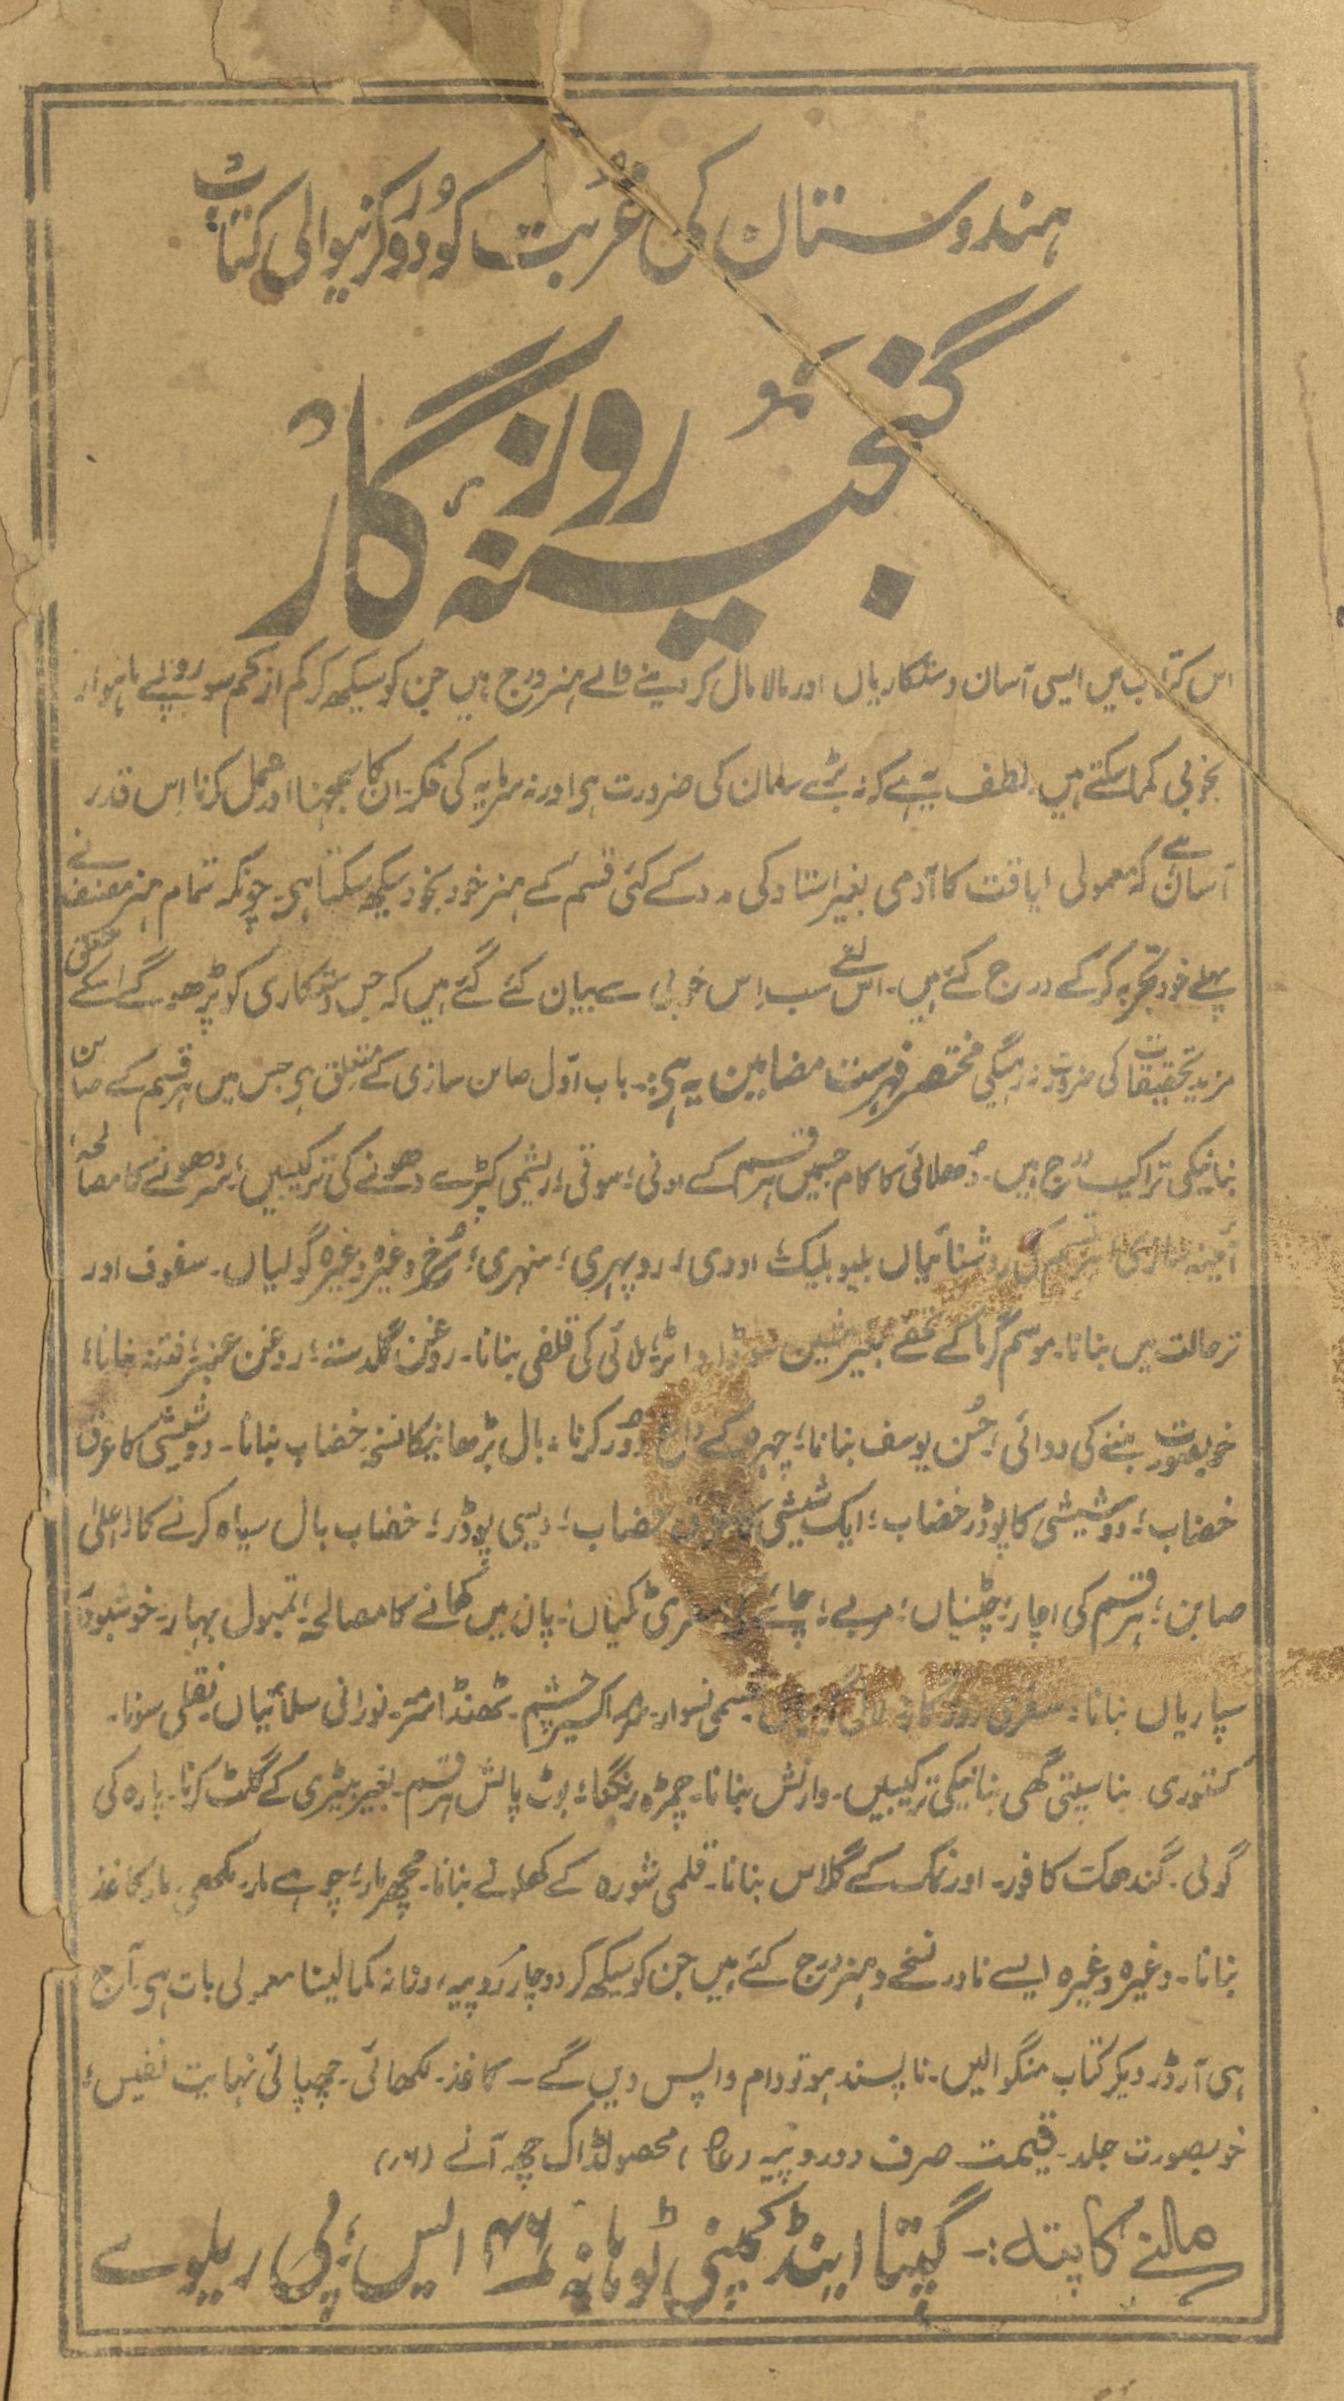 ہندوستان کی غربت کو دور کرنیوالی کتاب
گنجینہ روزگار
اس کتاب میں ایسی آسان دستکاریاں اور مالا مال کر دینے والے ہنر درج ہیں جن کو سیکھ کر کم از کم سو روپے ماہوار
بخوبی کما سکتے ہیں۔ لطف یہ ہے کہ نہ بڑے سامان کی ضرورت ہی اور نہ سرمایہ کی فکر۔ ان کا سمجھنا اور عمل کرنا اس قدر
آسان ہے کہ معمولی لیاقت کا آدمی بغیر استاد کی مدد کے کئی قسم کے ہنر خود بخود سیکھ سکتا ہی۔ چونکہ تمام ہنر مصنف نے
پہلے خود تجربہ کر کے درج کئے ہیں۔ اس لئے سب اس خوبی سے بیان کئے گئے ہیں کہ جس دستکاری کو پڑھو گے اسکے متعلق
مزید تحقیقات کی ضرورت نہ رہیگی مختصر فہرست مضامین یہ ہی:۔ باب اول صابن سازی کے متعلق ہی جس میں ہر قسم کے صابن
بنانیکی تراکیب درج ہیں۔ دھلائی کا کام جسمیں ہر قسم کے اونی؛ سوتی؛ ریشمی کپڑے دھونے کی ترکیبیں؛ سر دھونے کا مصالحہ؛
آئینہ سازی ہر قسم کی روشنائیاں بلیو بلیک؛ اودی؛ روپہری؛ سنہری؛ سرخ وغیرہ وغیرہ گولیاں۔ سفوف اور
تر حالت میں بنانا۔ موسم گرما کے تحفے بغیر مشین سوڈا واٹر؛ ملائی کی قلفی بنانا۔ روغن گلدستہ؛ روغن عنبر؛ فتنہ بنانا؛
خوبصورت بننے کی دوائی؛ حسن یوسف بنانا؛ چہرہ کے داغ دور کرنا۔ بال بڑھانیکا نسخہ خضاب بنانا۔ دو شیشی کا عرق
خضاب؛ دو شیشی کا پوڈر خضاب؛ ایک شیشی خضاب؛ دیسی پوڈر؛ خضاب بال سیاہ کرنے کا اعلیٰ
صابن؛ ہر قسم کی اچار؛ چٹنیاں؛ مربے؛ چائے ٹکیاں؛ پان میں کھانے کا مصالحہ؛ تمبول بہار۔ خوشبودار
سپاریاں بنانا۔ سفری نسوار۔ سرمہ اکسیر چشم۔ ٹھنڈا سرمہ۔ نورانی سلائیاں۔ نقلی سونا۔
کستوری بناسپتی گھی بنانیکی ترکیبیں۔ وارنش بنانا۔ چمڑہ رنگنا؛ بوٹ پالش ہر قسم۔ بغیر بیٹری کے گلٹ کرنا۔ پارہ کی
گولی۔ گندھک کافور۔ اور نمک کے گلاس بنانا۔ قلمی شورہ کے کھلونے بنانا۔ مچھر مار؛ چوہے مار۔ مکھی مار کاغذ
بنانا۔ وغیرہ وغیرہ ایسے نادر نسخے و ہنر درج کئے ہیں جن کو سیکھ کر دو چار روپیہ روزانہ کما لینا معمولی بات ہی۔ آج
ہی آرڈر دیکر کتاب منگوالیں۔ ناپسند ہو تو دام واپس دیں گے۔ کاغذ۔ لکھائی۔ چھپائی نہایت نفیس؛
خوبصورت جلد۔ قیمت صرف دو روپیہ محصولڈاک چھ آنے (۶؍)
ملنے کا پتہ:۔ گپتا اینڈ کمپنی ٹوہانہ ایس؛ پی ریلوے